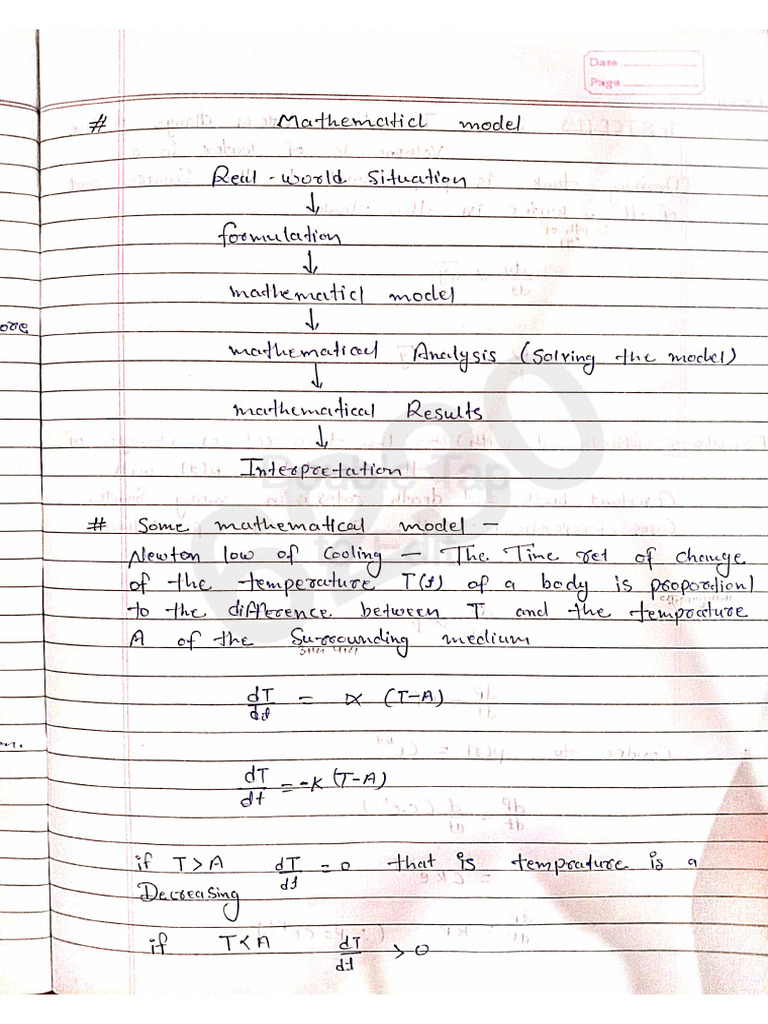 Date
Page
# Mathematicl model
Real-world Situation
↓
formulation
↓
mathematicl model
↓
mathematical Analysis (Solving the model)
↓
mathematical Results
↓
Interpretation
ove
# Some mathematical model -
Newton low of Cooling - The Time ret of change
of the temperature T(t) of a body is propordionl
to the difference between T and the temprature
A of the Surrounding medium
dT/dt = ∝ (T-A)
m.
dT/dt = -K (T-A)
if T>A dT/dt = 0 that is temprature is a
Decreasing
if T<A dT/dt > 0
6280
Double Tap